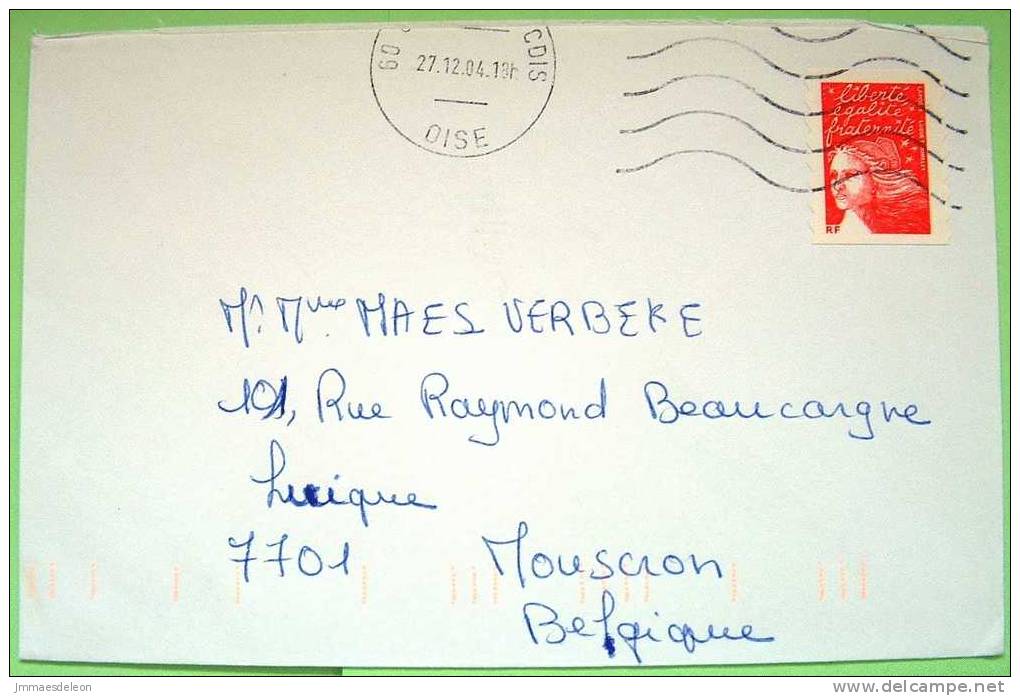 60 CDIS
27.12.04.18h
OISE
liberté
égalité
fraternité
RF
Mr. Mme MAES VERBEKE
101, Rue Raymond Beaucargne
Luique
7701 Mouscron
Belgique
jmmaesdeleon
delcampe.net